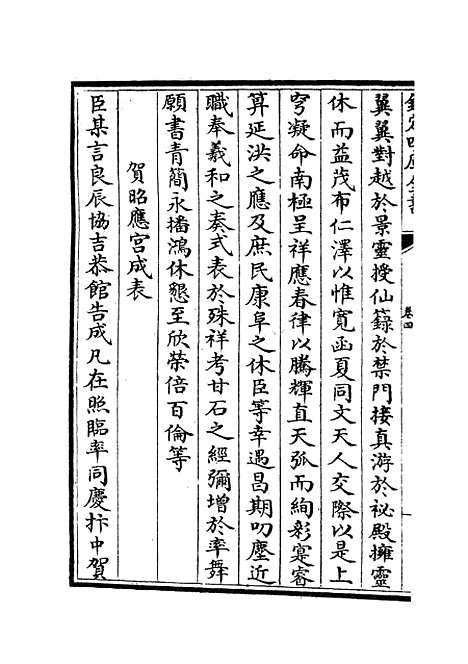 欽定四庫全書
卷四
翼翼對越於景靈授仙籙於禁門接真游於祕殿擁靈
休而益茂布仁澤以惟寛函夏同文天人交際以是上
穹凝命南極呈祥應春律以騰輝直天弧而絢彩寔睿
算延洪之應及庶民康阜之休臣等幸遇昌期叨塵近
職奉羲和之奏式表於殊祥考甘石之經彌增於率舞
願書青簡永播鴻休懇至欣榮倍百倫等
賀昭應宮成表
臣某言良辰協吉恭館告成凡在照臨率同慶抃中賀